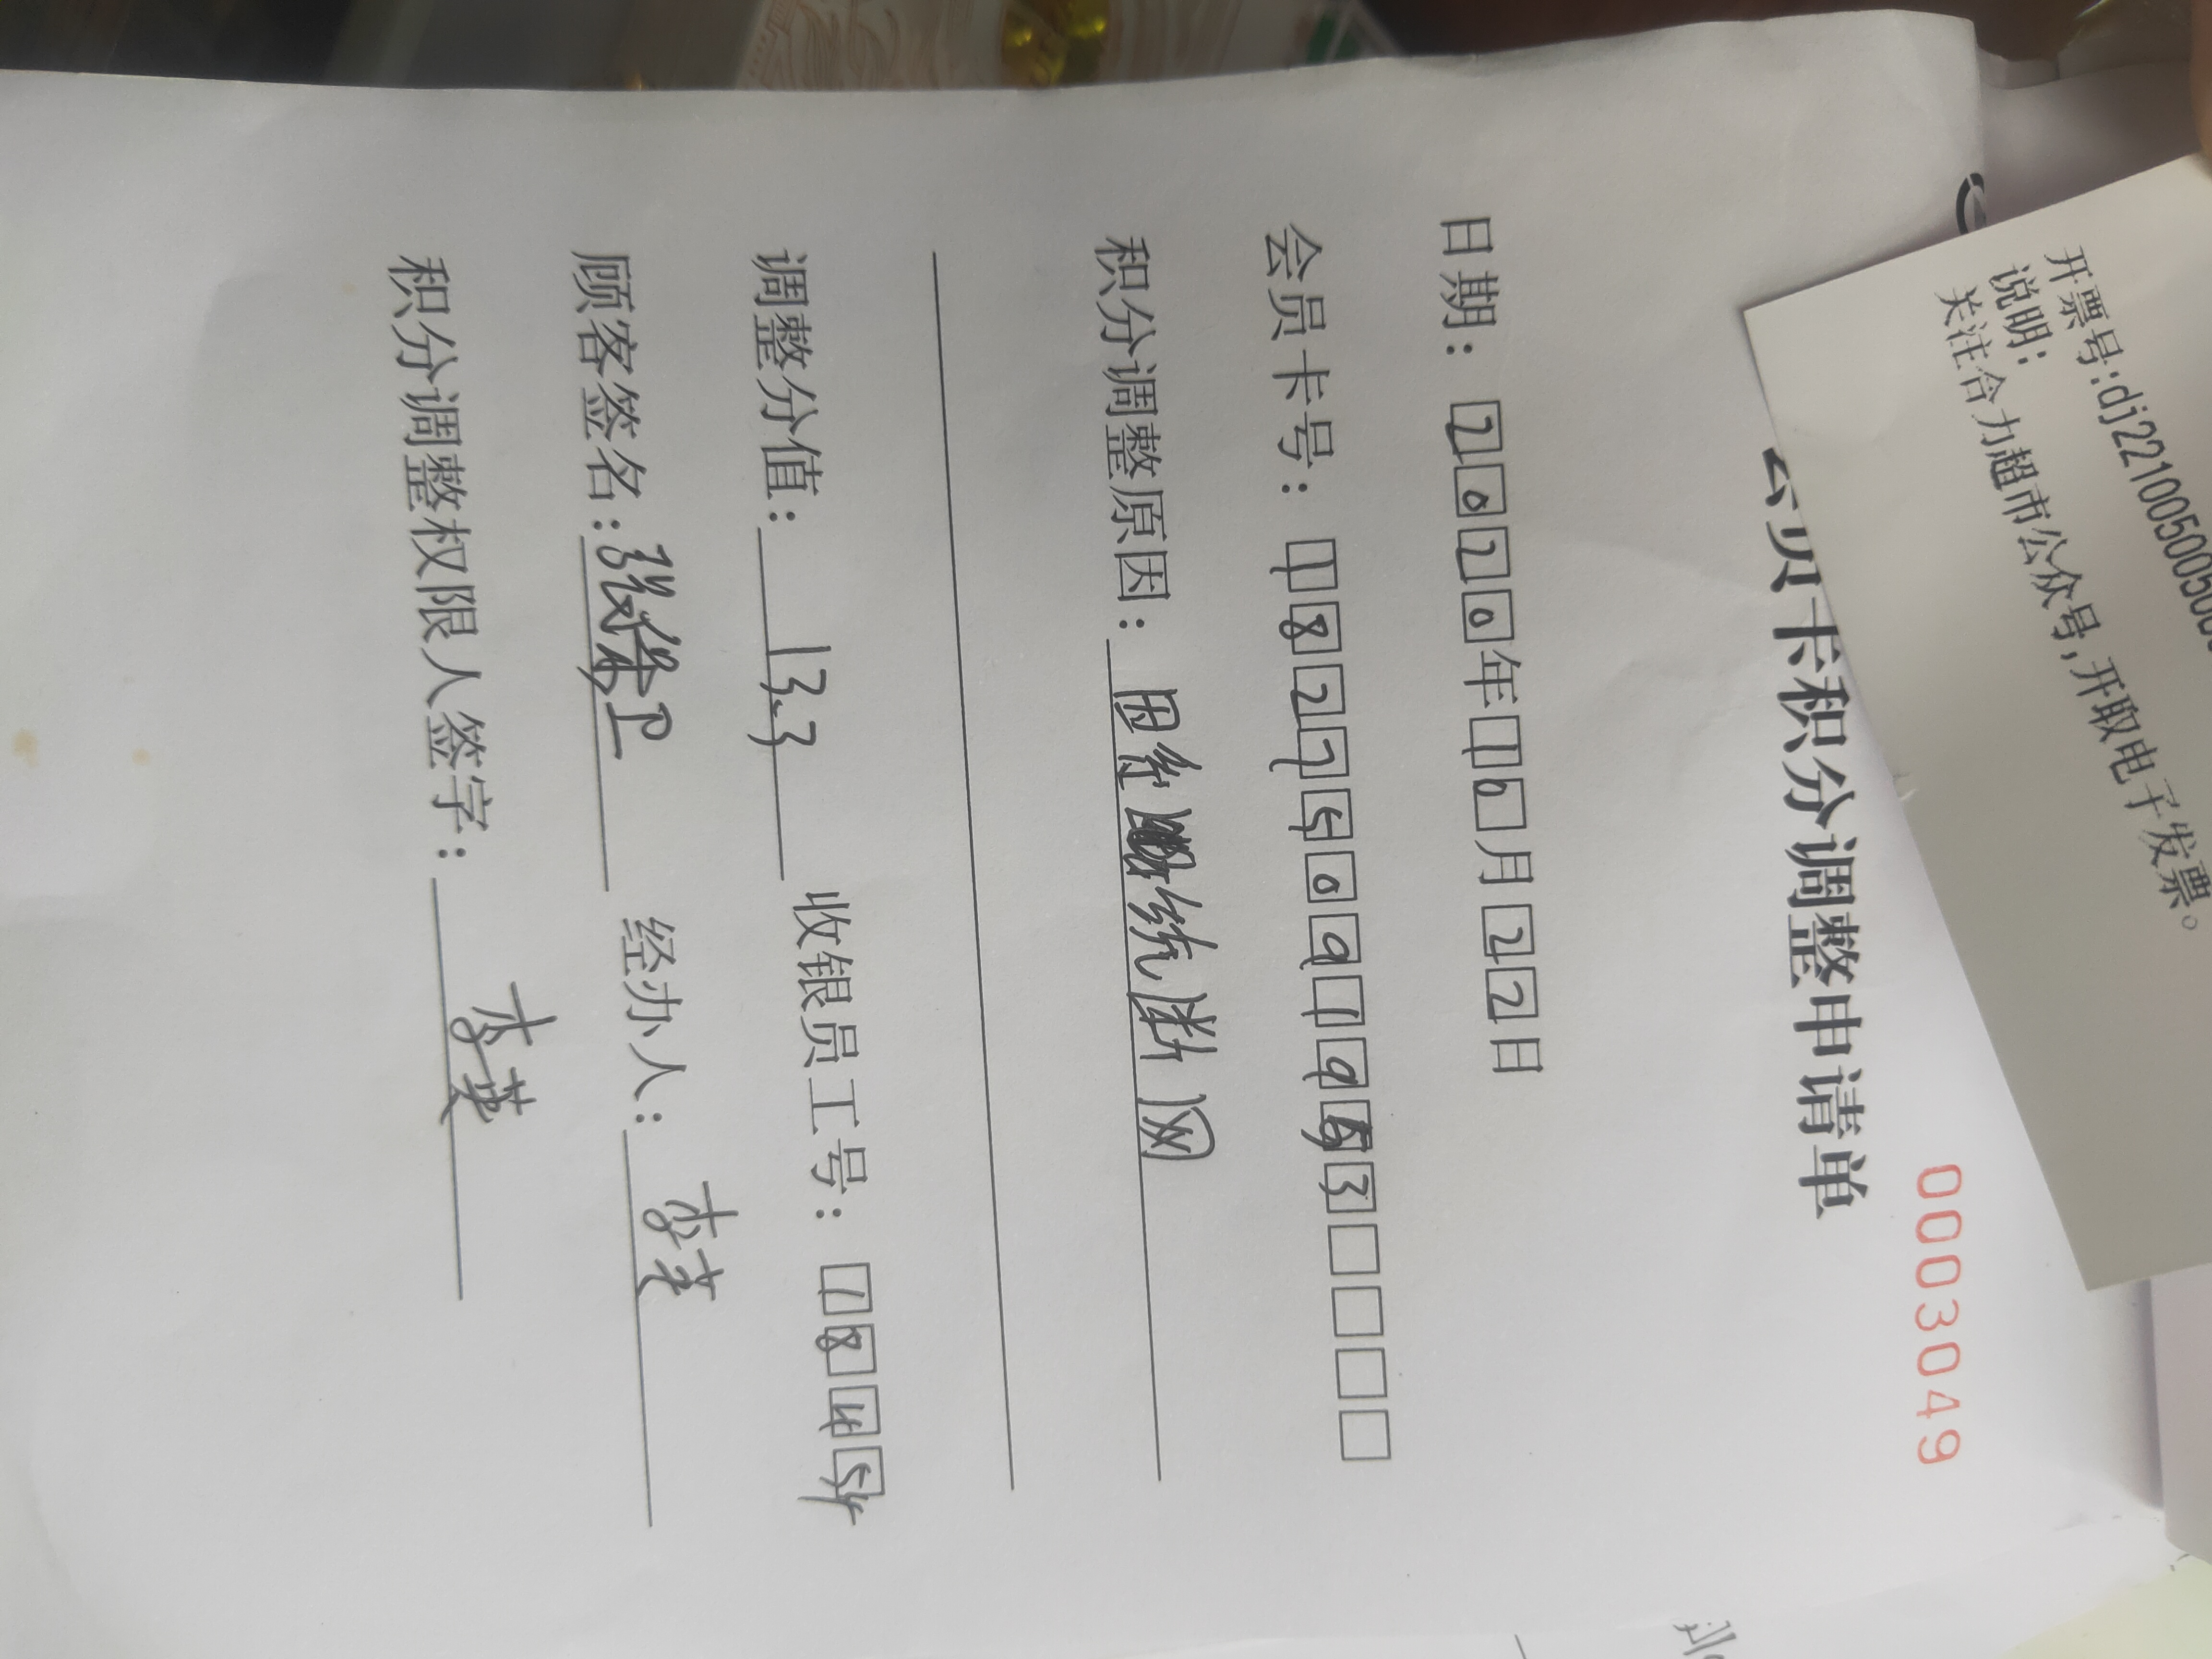 开票号:dj22100500500
说明:
关注合力超市公众号,开取电子发票。
0003049
会员卡积分调整申请单
日期：2020年10月22日
会员卡号：18275091953
积分调整原因：因系统断网
调整分值：13.3 收银员工号：1845
顾客签名：张 经办人：李英
积分调整权限人签字：李英